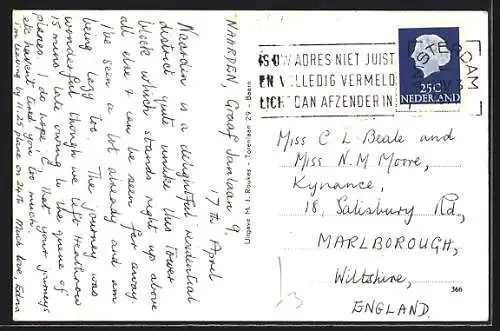 NAARDEN, Graaf Janlaan 9.
17th April
Naarden is a delightful residential
district quite unlike this Tower
block which stands right up above
all else & can be seen for away.
I've seen a lot already and am
being lazy too. The journey was
wonderful though we left Heathrow
15 mins late owing to the queue of
planes! I do hope, C, that your journeys
etc haven't tired you too much.
I'm leaving by 11.25 plane on 24th. Much love, Edna
Uitgave M. J. Roukes - Torenlaan 29 - Baarn
IS UW ADRES NIET JUIST
EN VOLLEDIG VERMELD
LICHT DAN AFZENDER IN
STERDAM
25C
NEDERLAND
Miss C L Beale and
Miss N M Moore,
Kynance,
18, Salisbury Rd,
MARLBOROUGH,
Wiltshire,
ENGLAND.
366
13